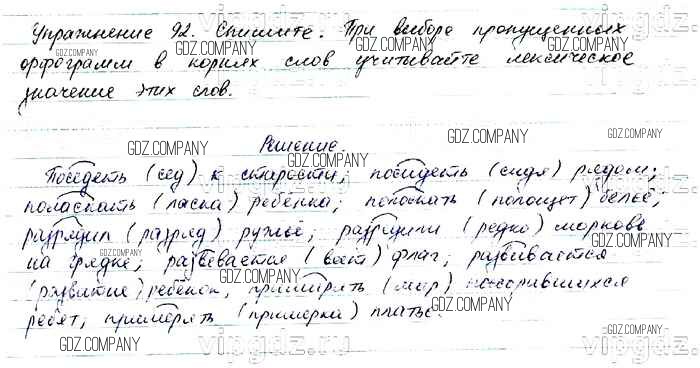 Упражнение 92. Спишите. При выборе пропущенных
орфограмм в корнях слов учитывайте лексическое
значение этих слов.
Решение.
Поседеть (сед) к старости; посидеть (сидя) рядом;
поласкать (ласка) ребёнка; полоскать (полощет) бельё;
разрядил (разряд) ружьё; разрядили (редко) морковь
на грядке; развевается (веет) флаг; развивается
(развитие) ребёнок, примирять (мир) поссорившихся
ребят; примерять (примерка) платье.
GDZ.COMPANY
vipgdz.ru